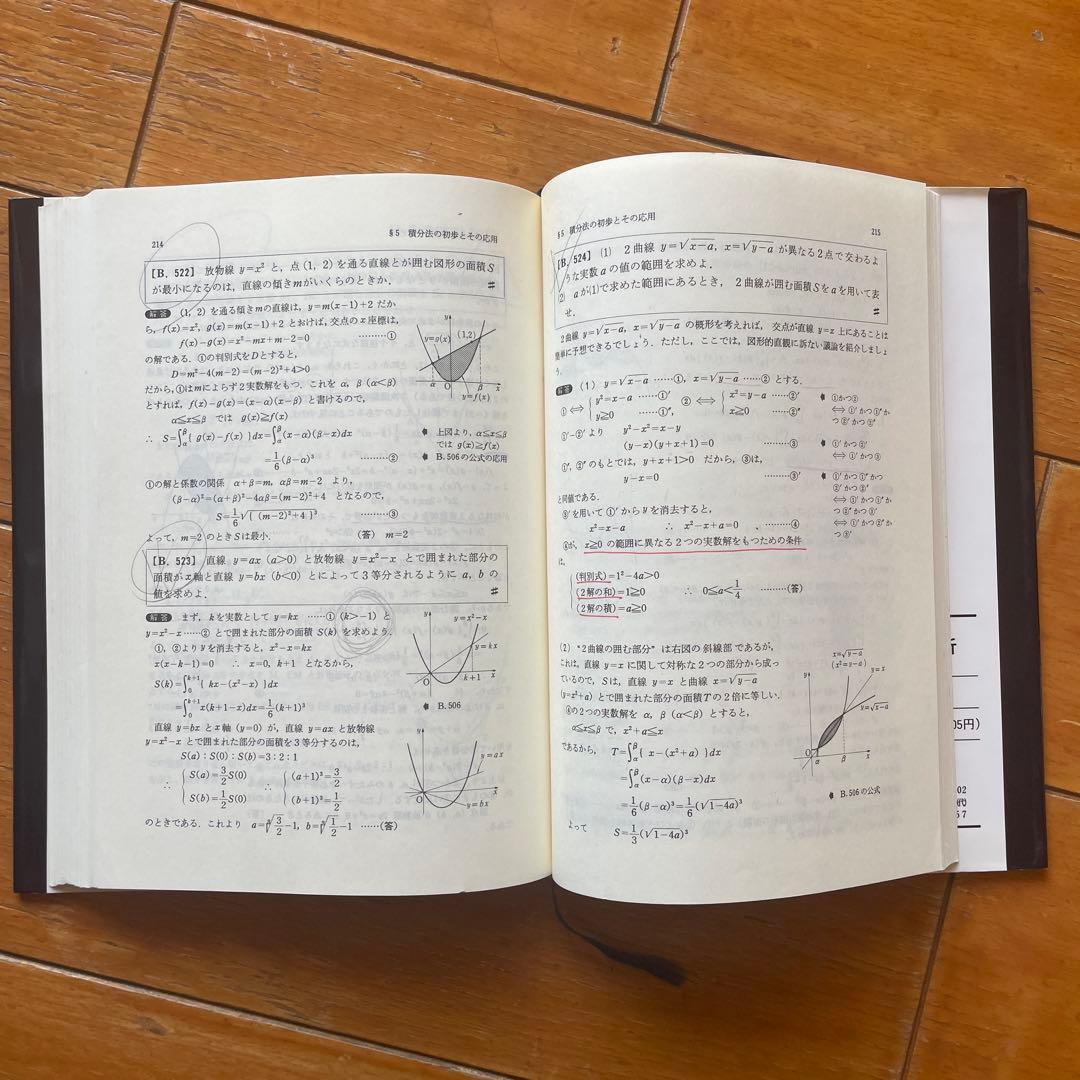 214
§5 積分法の初歩とその応用
[B. 522] 放物線 y=x² と，点 (1, 2) を通る直線とが囲む図形の面積 S
が最小になるのは，直線の傾き m がいくらのときか．
#
解答 (1, 2) を通る傾き m の直線は，y=m(x−1)+2 だか
ら，f(x)=x²，g(x)=m(x−1)+2 とおけば，交点の x 座標は，
f(x)−g(x)=x²−mx+m−2=0 ………①
の解である．①の判別式を D とすると，
D=m²−4(m−2)=(m−2)²+4>0
だから，①は m によらず 2 実数解をもつ．これを α, β (α<β)
とすれば，f(x)−g(x)=(x−α)(x−β) と書けるので，
α≦x≦β では g(x)≧f(x)
∴ S=∫_α^β{ g(x)−f(x) }dx=∫_α^β(x−α)(β−x)dx
=1/6(β−α)³ ………②
y
y=g(x)
(1,2)
α
O
β
x
y=f(x)
上図より，α≦x≦β
では g(x)≧f(x)
B. 506 の公式の応用
①の解と係数の関係 α+β=m, αβ=m−2 より，
(β−α)²=(α+β)²−4αβ=(m−2)²+4 となるので，
S=1/6√{ (m−2)²+4 }³ ………③
よって，m=2 のとき S は最小． (答) m=2
[B. 523] 直線 y=ax (a>0) と放物線 y=x²−x とで囲まれた部分の
面積が x 軸と直線 y=bx (b<0) とによって 3 等分されるように a, b の
値を求めよ．
#
解答 まず，k を実数として y=kx ……① (k>−1) と
y=x²−x ……② とで囲まれた部分の面積 S(k) を求めよう．
①, ②より y を消去すると，x²−x=kx
x(x−k−1)=0 ∴ x=0, k+1 となるから，
S(k)=∫_0^{k+1}{ kx−(x²−x) }dx
=∫_0^{k+1}x(k+1−x)dx=1/6(k+1)³
y
y=x²−x
y=kx
O
k+1
x
B. 506
直線 y=bx と x 軸 (y=0) が，直線 y=ax と放物線
y=x²−x とで囲まれた部分の面積を 3 等分するのは，
S(a) : S(0) : S(b)=3 : 2 : 1
∴ { S(a)=3/2 S(0) ∴ { (a+1)³=3/2
S(b)=1/2 S(0) (b+1)³=1/2
のときである．これより a=∛(3/2)−1, b=∛(1/2)−1 ……(答)
y
y=ax
O
x
y=bx
§5 積分法の初歩とその応用
215
[B. 524] (1) 2 曲線 y=√(x−a), x=√(y−a) が異なる 2 点で交わるよ
うな実数 a の値の範囲を求めよ．
(2) a が(1)で求めた範囲にあるとき，2 曲線が囲む面積 S を a を用いて表
せ．
#
2 曲線 y=√(x−a), x=√(y−a) の概形を考えれば，交点が直線 y=x 上にあることは
簡単に予想できるでしょう．ただし，ここでは，図形的直観に訴ない議論を紹介しましょ
う．
解答 (1) y=√(x−a) ……①, x=√(y−a) ……② とする．
① ⟺ { y²=x−a ……①′ ② ⟺ { x²=y−a ……②′
y≧0 ……①″, x≧0 ……②″
①′−②′ より y²−x²=x−y
(y−x)(y+x+1)=0 ………③
①″, ②″ のもとでは，y+x+1>0 だから，③は，
y−x=0 ………③′
と同値である．
①かつ②
⟺ ①′ かつ ①″か
つ ②′かつ ②″
①′ かつ ②′
⟺ ①′ かつ ③
①′ かつ ①″ かつ
②′ かつ ②″
⟺ ①′ かつ ①″ か
つ ②″ かつ ③′
⟺ ①′ かつ ②″か
つ ③′
③′を用いて ①′ から y を消去すると，
x²=x−a ∴ x²−x+a=0 ……④
④が，x≧0 の範囲に異なる 2 つの実数解をもつための条件
は，
{ (判別式)=1²−4a>0
(2 解の和)=1≧0 ∴ 0≦a<1/4 ………(答)
(2 解の積)=a≧0
(2) “2 曲線の囲む部分” は右図の斜線部であるが，
これは，直線 y=x に関して対称な 2 つの部分から成っ
ているので，S は，直線 y=x と曲線 x=√(y−a)
(y=x²+a) とで囲まれた部分の面積 T の 2 倍に等しい．
④の 2 つの実数解を α, β (α<β) とすると，
α≦x≦β で，x²+a≦x
であるから，T=∫_α^β{ x−(x²+a) }dx
=∫_α^β(x−α)(β−x)dx
=1/6(β−α)³=1/6(√(1−4a))³
よって S=1/3(√(1−4a))³
x=√(y−a)
(x²=y−a)
y
y=x
y=√(x−a)
α
β
x
B. 506 の公式